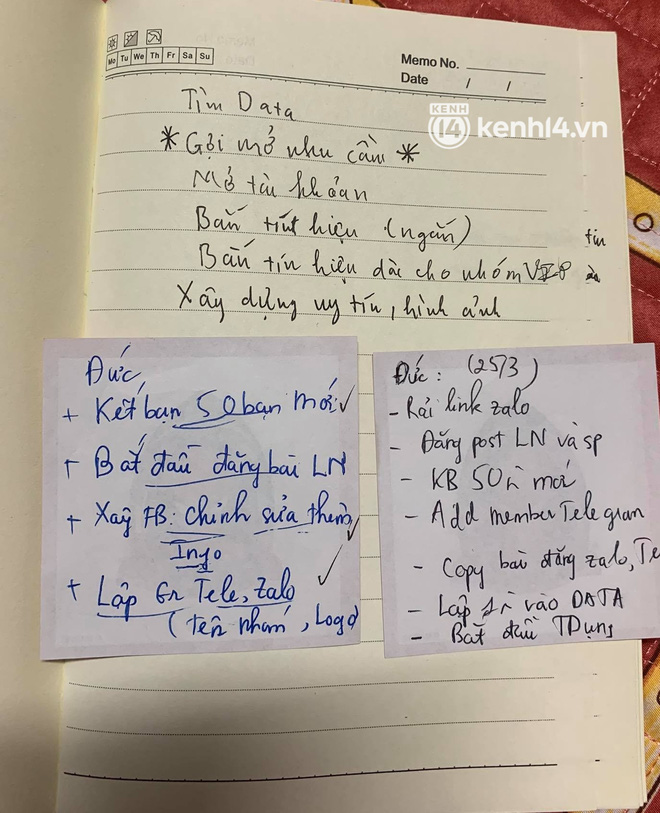 Mo Tu We Th Fr Sa Su
Memo No.
Date / /
KENH 14 kenh14.vn
Tìm Data
* Gợi mở nhu cầu *
Mở tài khoản
Bắn tín hiệu (ngắn)
tin
Bắn tín hiệu dài cho nhóm VIP
Xây dựng uy tín, hình ảnh
Đức
+ Kết bạn 50 bạn mới ✓
+ Bắt đầu đăng bài LN
+ Xây FB: chỉnh sửa thêm
Info
+ Lập Gr Tele, Zalo ✓
(tên nhóm, Logo
Đức: (25/3)
- Rải link zalo
- Đăng post LN và sp
- KB 50 mới
- Add member Telegram
- Copy bài đăng zalo, Te
- Lập vào DATA
- Bắt đầu TDụng